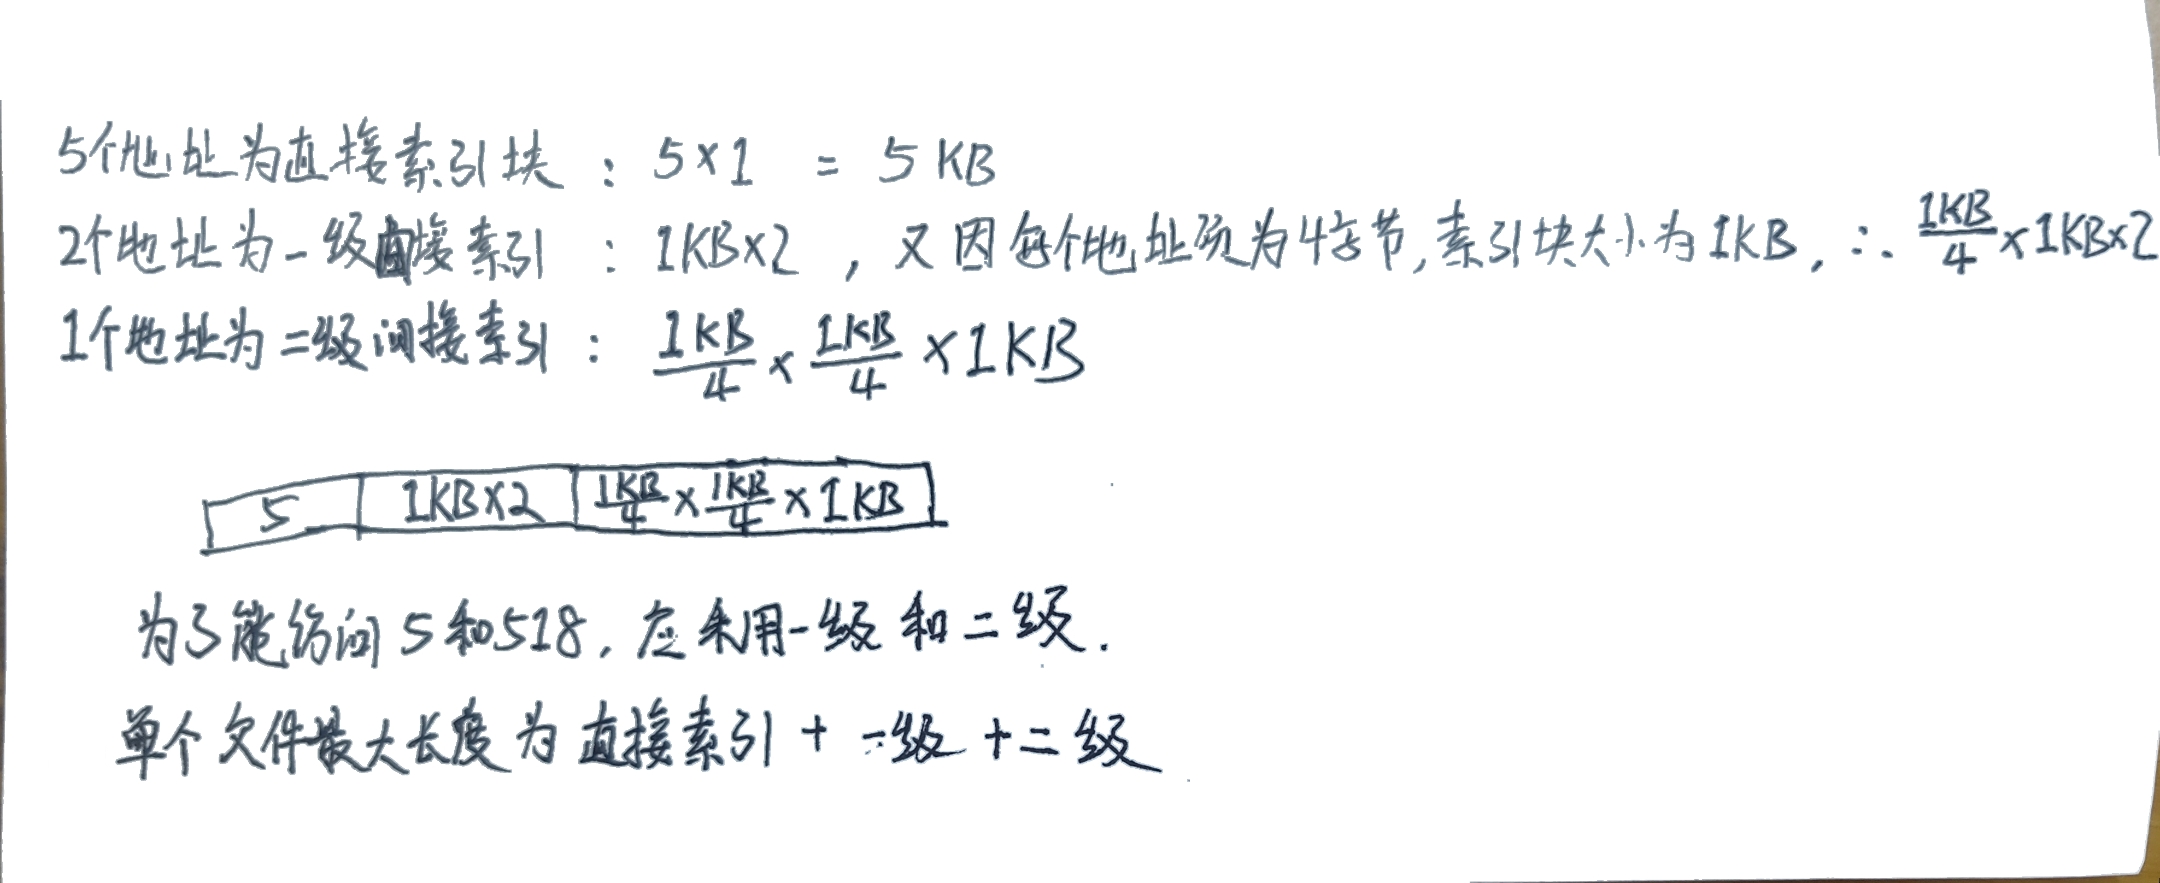 5个地址为直接索引块：5×1 = 5KB
2个地址为一级间接索引：1KB×2，又因每个地址项为4字节,索引块大小为1KB，∴ 1KB/4×1KB×2
1个地址为二级间接索引：1KB/4×1KB/4×1KB
5 1KB×2 1KB/4×1KB/4×1KB
为了能访问5和518，应采用一级和二级.
单个文件最大长度为直接索引+一级+二级